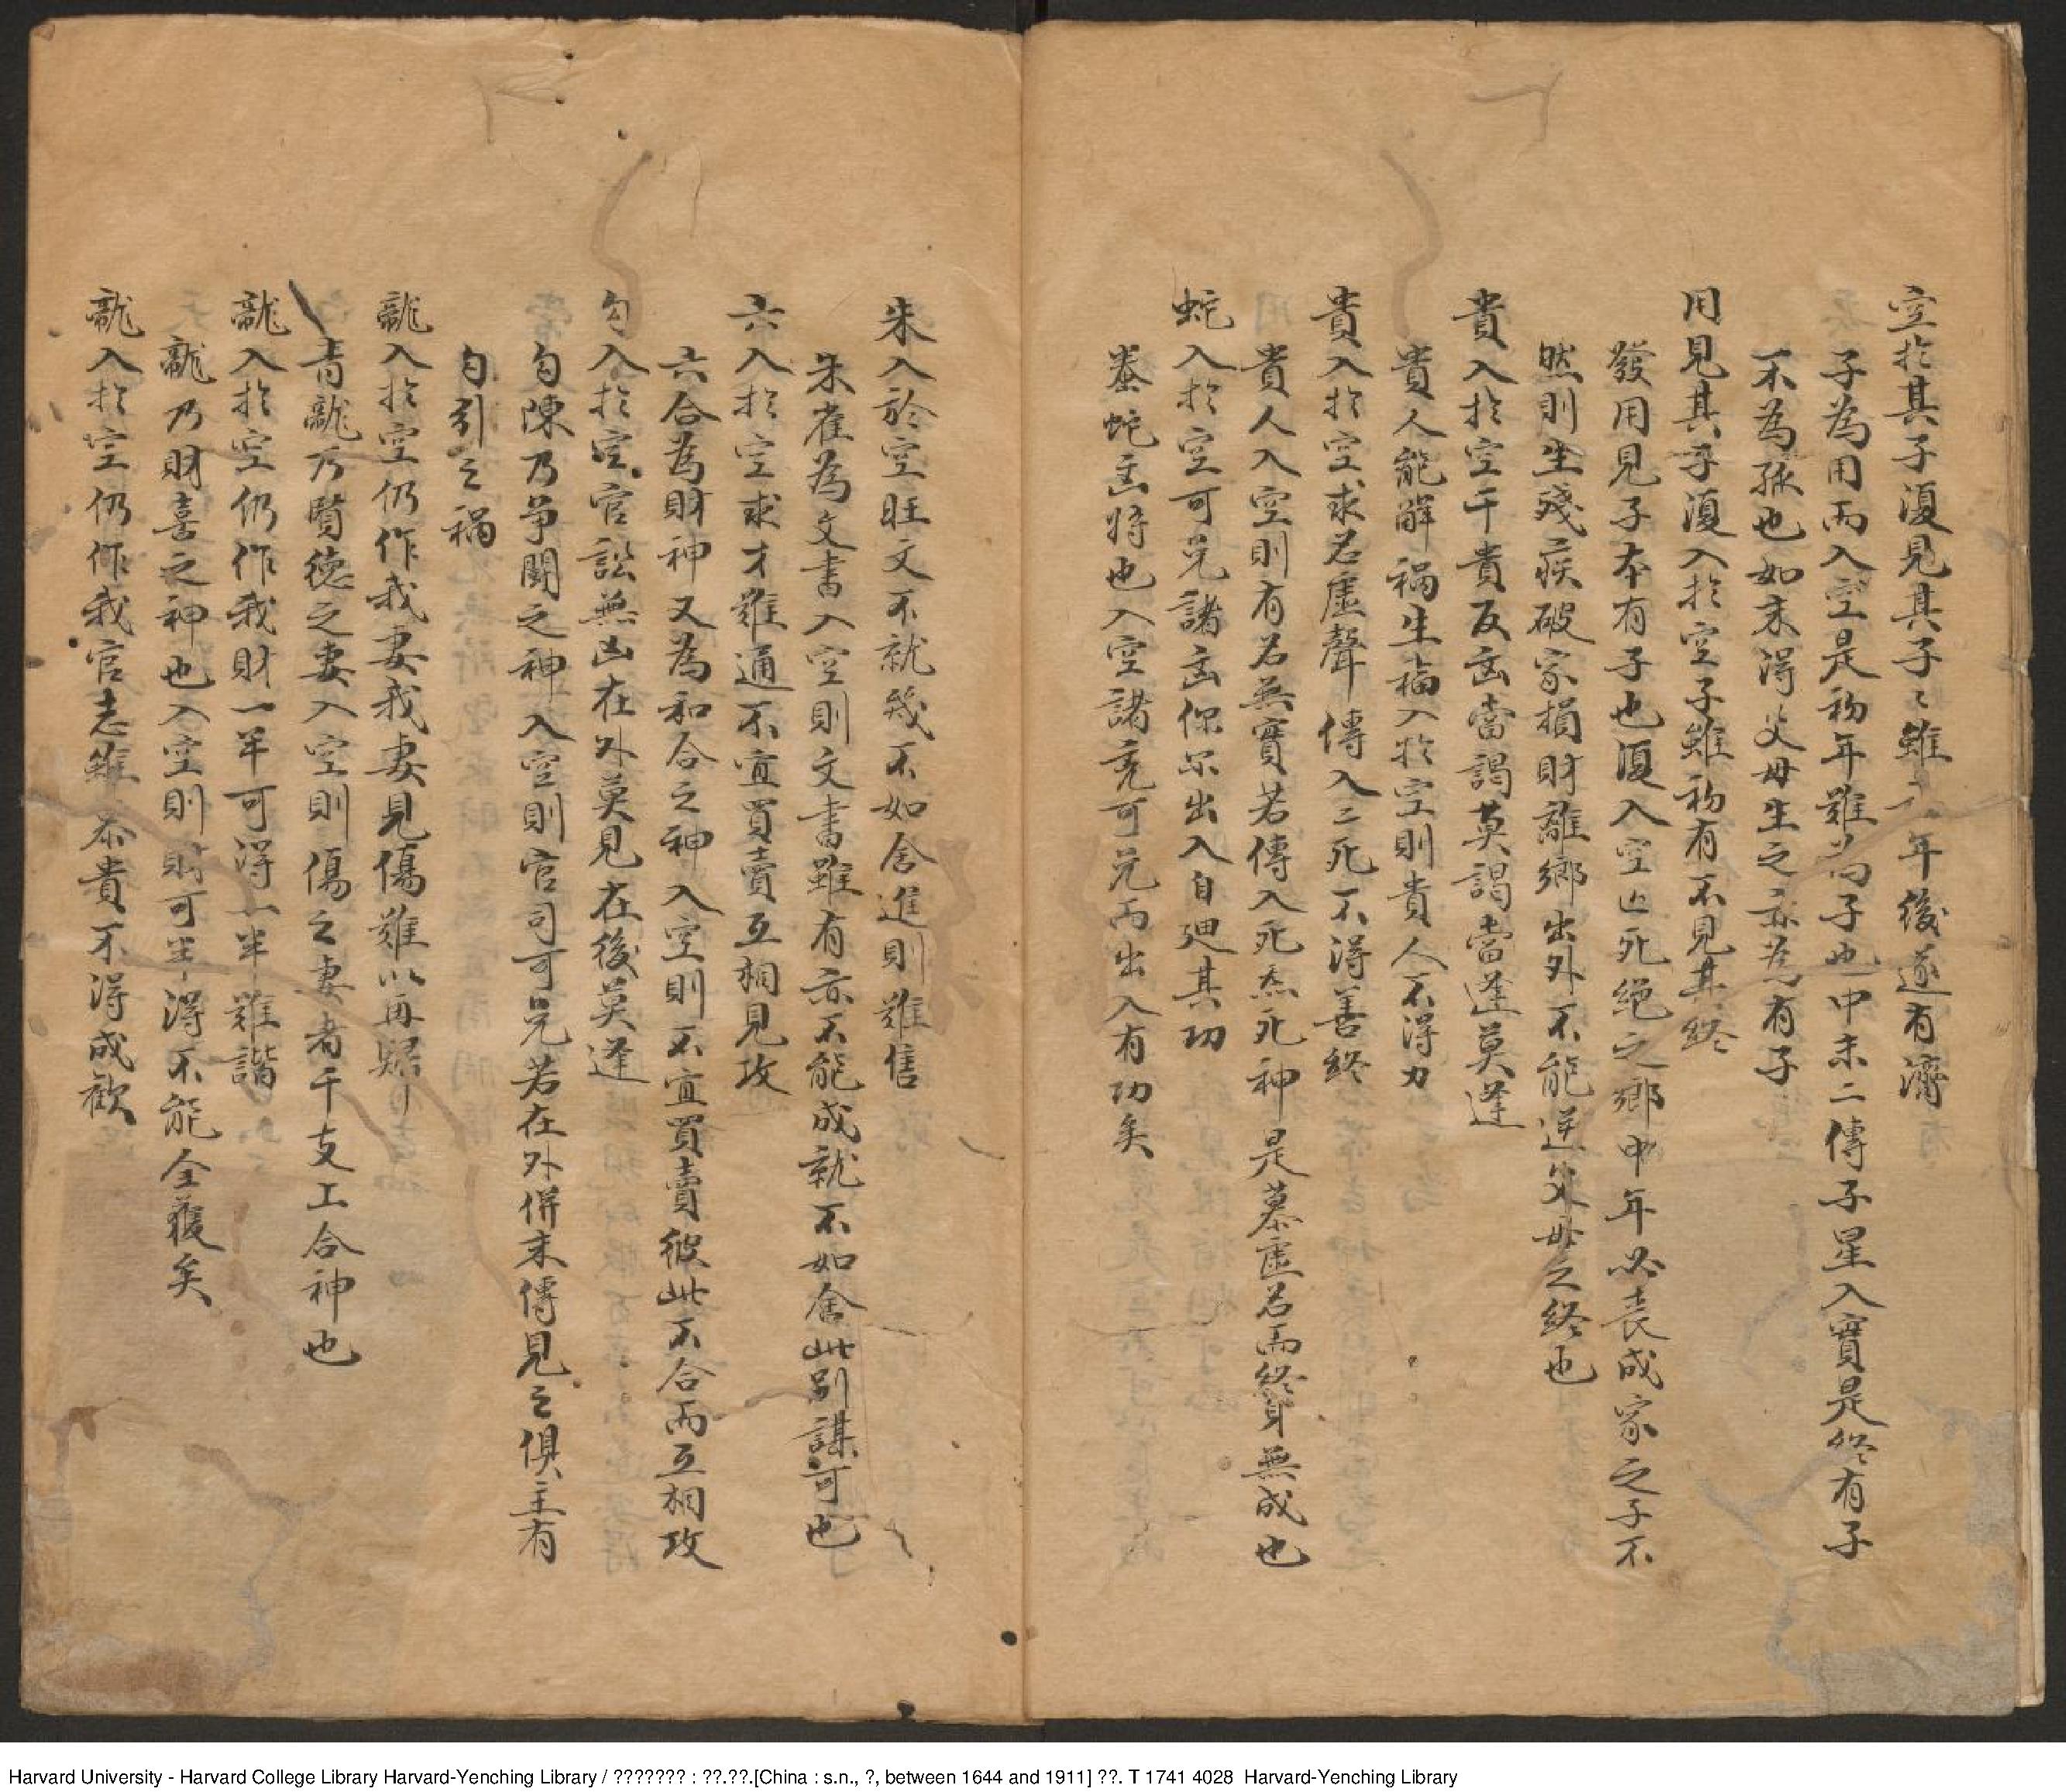 空於其子復見其子〻雖 年後遂有濟
子為用而入空是初年難為子也中末二傳子星入實是終有子
不為孤也如末得父母生之亦為有子
用見其子復入於空子雖初有不見其終
發用見子本有子也復入空亡死絕之鄉中年必丧成家之子不
然則生殘疾破家損財離鄉出外不能送父母之終也
貴入於空干貴反凶當謁莫謁當逢莫逢
貴人能解禍生福入於空則貴人不得力
貴入於空求名虛聲傳入三死不得善終
貴人入空則有名無實若傳入死炁死神是慕虛名而終身無成也
蛇入於空可免諸凶你尔出入自廻其功
螣蛇凶將也入空諸 可免而出入有功矣
朱入於空旺文不就幾不如舍進則难售
朱雀為文書入空則文書雖有亦不能成就不如舍此别謀可也
六入於空求才難通不宜買賣互相見攻
六合為財神又為和合之神入空則不宜買賣彼此不合而互相攻
勾入於空官訟無凶在外莫見在後莫逢
勾陳乃爭鬪之神入空則官司可免若在外併末傳見之俱主有
勾引之禍
龍入於空仍作我妻我妻見傷難以再歸
青龍乃賢德之妻入空則傷之妻者干支上合神也
龍入於空仍作我財一半可得一半难諧
龍乃財喜之神也入空則財可半得不能全獲矣
龍入於空仍作我官志雖 貴不得成歡
Harvard University - Harvard College Library Harvard-Yenching Library / ??????? : ??.??.[China : s.n., ?, between 1644 and 1911] ??. T 1741 4028  Harvard-Yenching Library